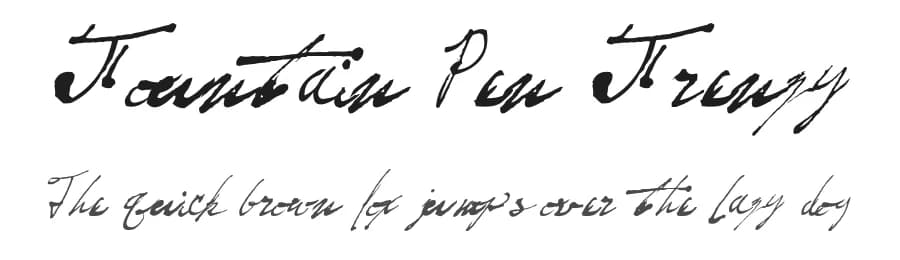 Fountain Pen Frenzy
The quick brown fox jumps over the lazy dog